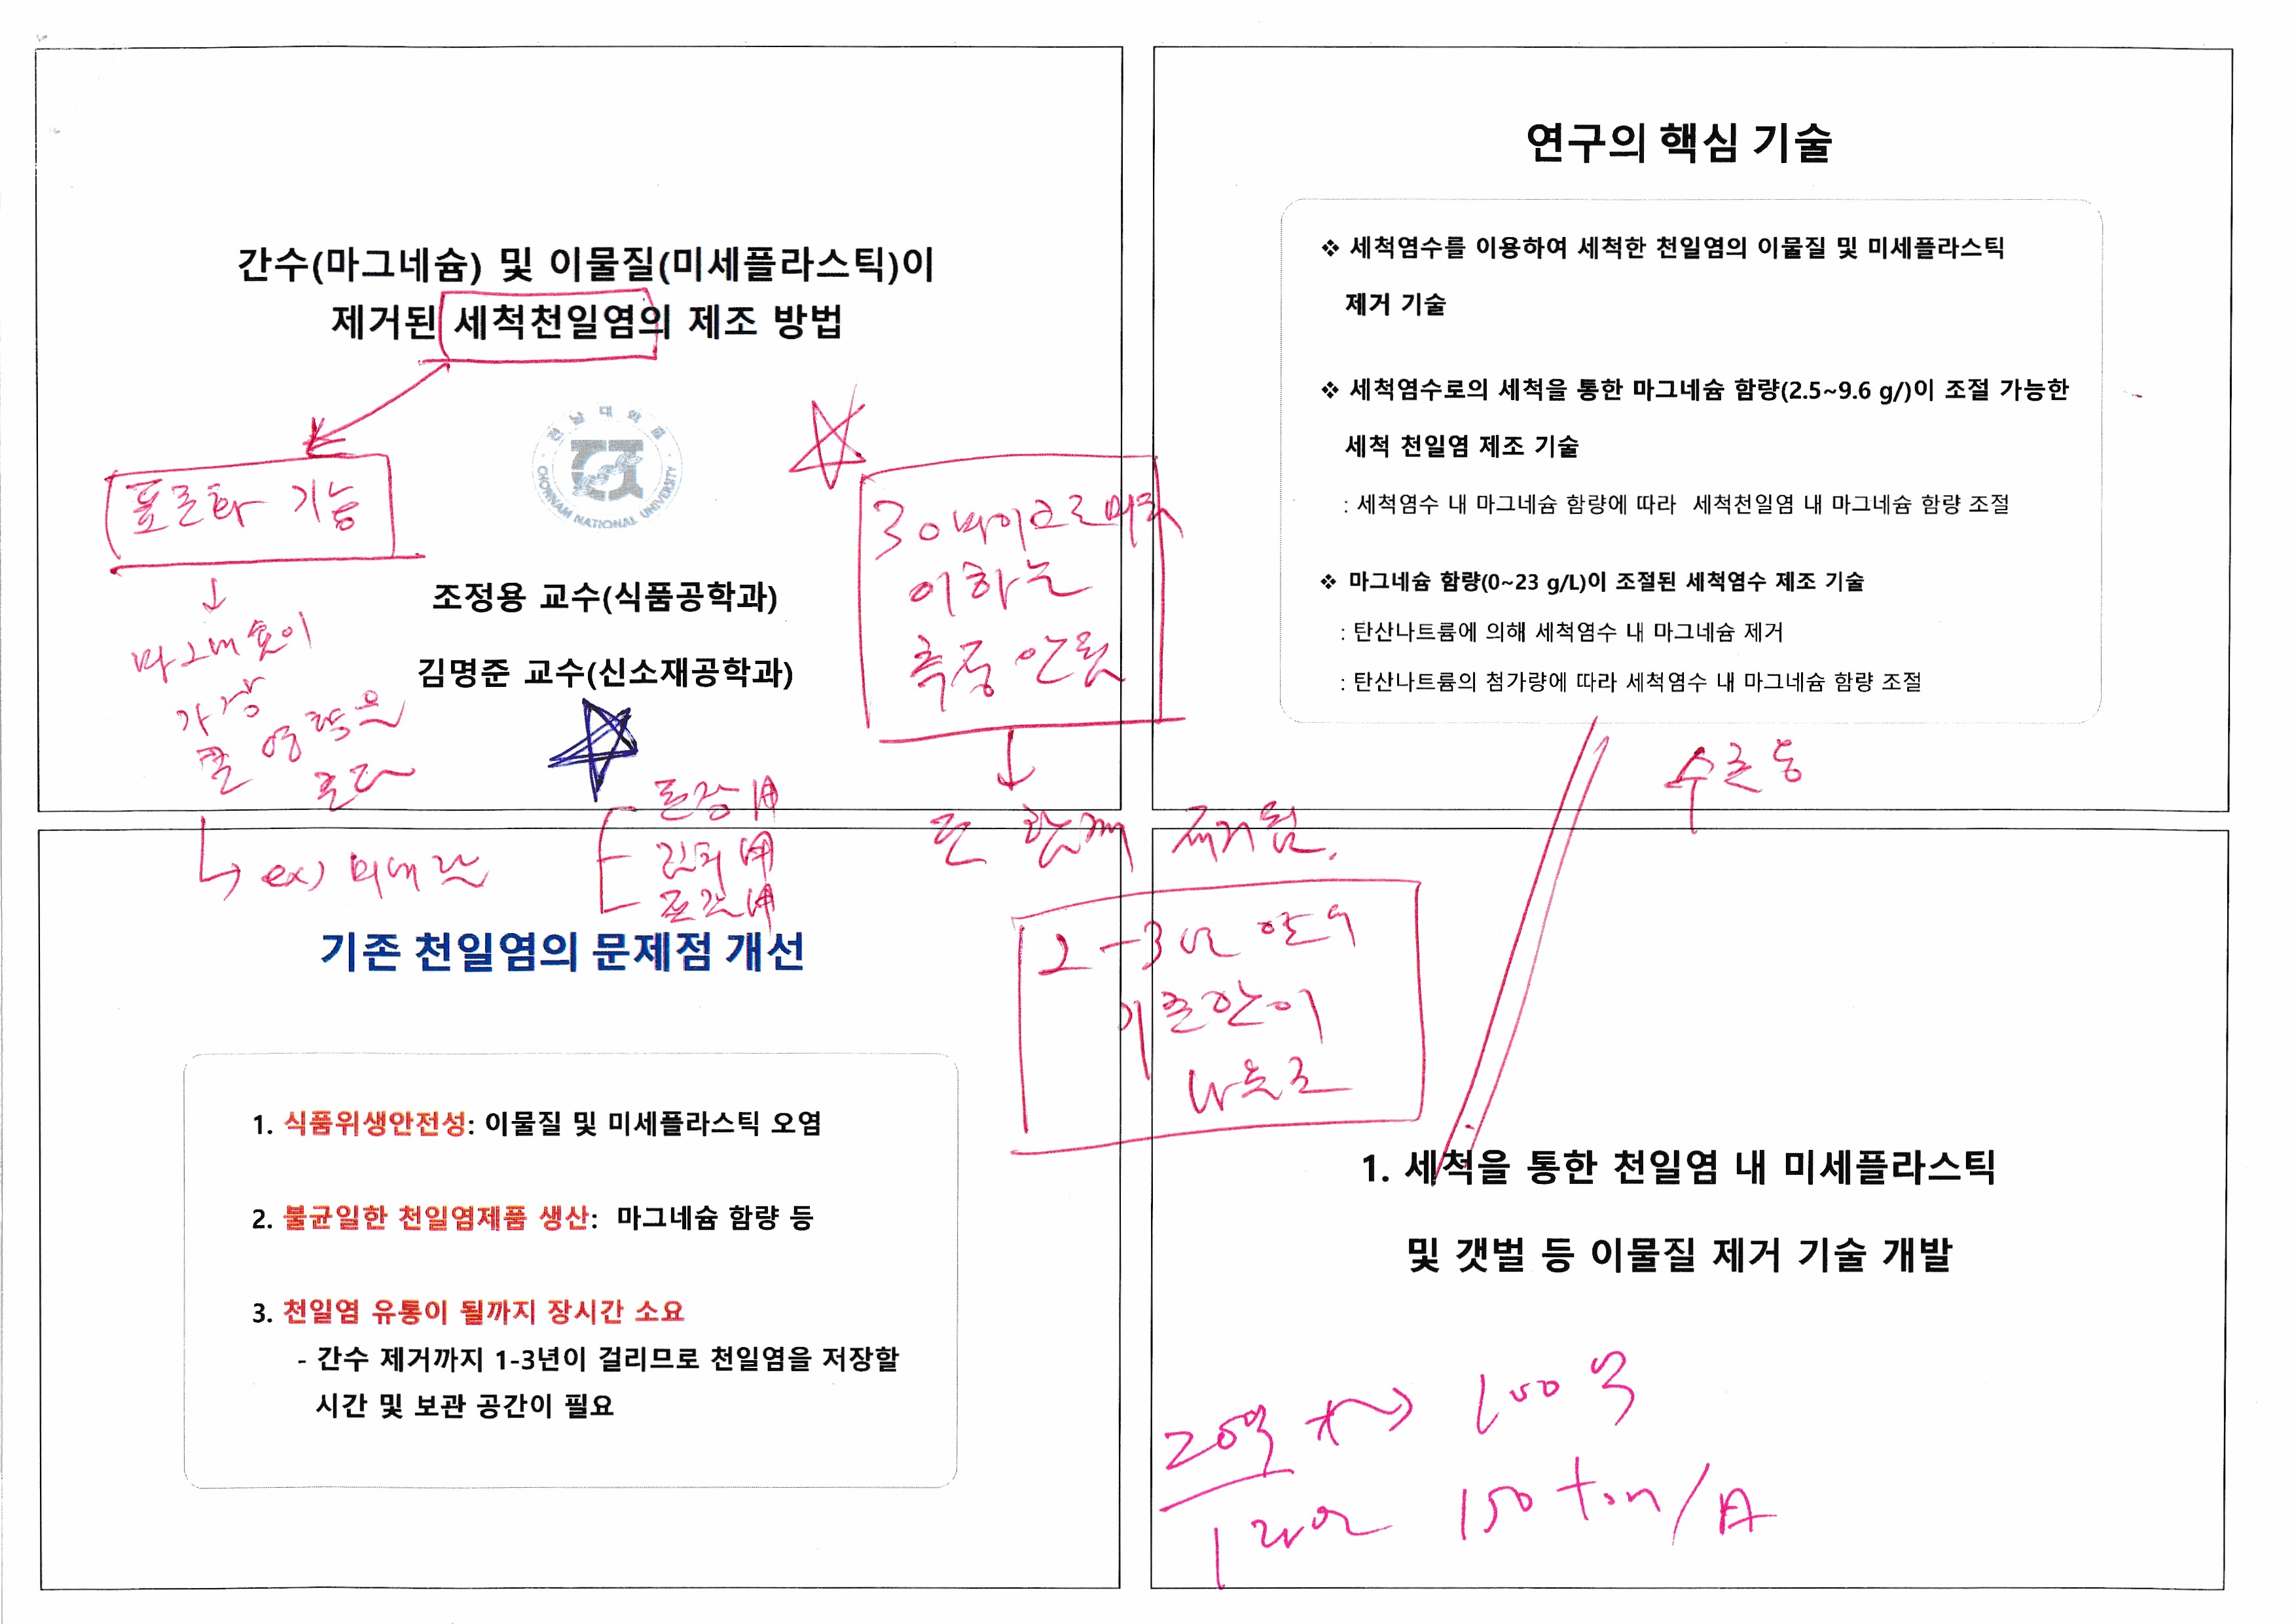 간수(마그네슘) 및 이물질(미세플라스틱)이
제거된 세척천일염의 제조 방법
전남대학교
CHONNAM NATIONAL UNIVERSITY
표준화 기능
↓
마그네슘이
가장
큰 영향을
준다
↳ ex) 미네랄
조정용 교수(식품공학과)
김명준 교수(신소재공학과)
30마이크로미터
이하는
측정 안됨
↓
제거됨.
연구의 핵심 기술
❖ 세척염수를 이용하여 세척한 천일염의 이물질 및 미세플라스틱
제거 기술
❖ 세척염수로의 세척을 통한 마그네슘 함량(2.5~9.6 g/)이 조절 가능한
세척 천일염 제조 기술
: 세척염수 내 마그네슘 함량에 따라 세척천일염 내 마그네슘 함량 조절
❖ 마그네슘 함량(0~23 g/L)이 조절된 세척염수 제조 기술
: 탄산나트륨에 의해 세척염수 내 마그네슘 제거
: 탄산나트륨의 첨가량에 따라 세척염수 내 마그네슘 함량 조절
기존 천일염의 문제점 개선
1. 식품위생안전성: 이물질 및 미세플라스틱 오염
2. 불균일한 천일염제품 생산: 마그네슘 함량 등
3. 천일염 유통이 될까지 장시간 소요
- 간수 제거까지 1-3년이 걸리므로 천일염을 저장할
시간 및 보관 공간이 필요
2-3년
1. 세척을 통한 천일염 내 미세플라스틱
및 갯벌 등 이물질 제거 기술 개발
20억 → 100억
1라인 150 ton/月